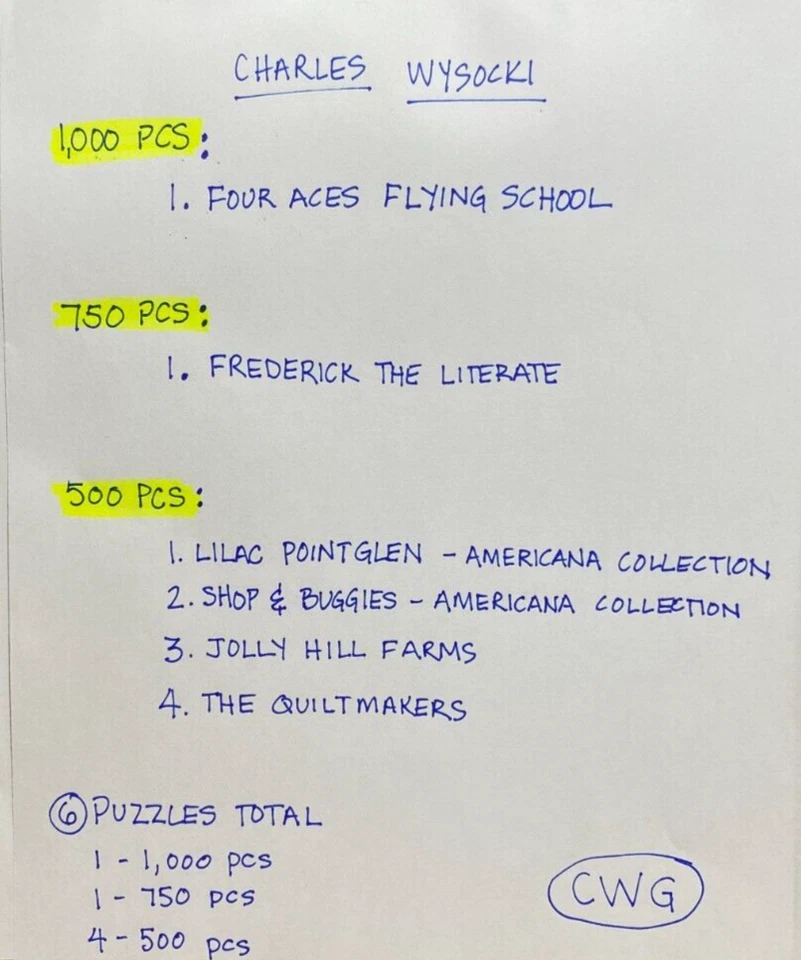 CHARLES WYSOCKI
1,000 PCS:
1. FOUR ACES FLYING SCHOOL
750 PCS:
1. FREDERICK THE LITERATE
500 PCS:
1. LILAC POINT GLEN - AMERICANA COLLECTION
2. SHOP & BUGGIES - AMERICANA COLLECTION
3. JOLLY HILL FARMS
4. THE QUILTMAKERS
6 PUZZLES TOTAL
1 - 1,000 pcs
1 - 750 pcs
4 - 500 pcs
CWG